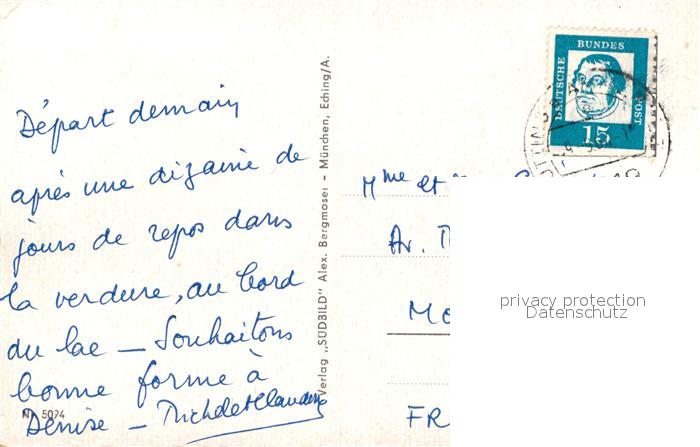 Départ demain
après une dizaine de
jours de repos dans
la verdure, au bord
du lac — Souhaitons
bonne forme à
Denise —
Nr. 5074
Verlag „SÜDBILD" Alex. Bergmoser - München, Eching/A.
DEUTSCHE BUNDES POST
15
Mme et
Av.
privacy protection
Datenschutz